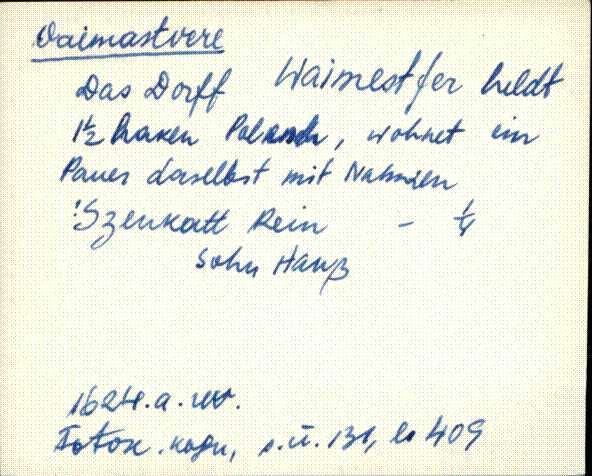 Vaimastvere
Das Dorff Waimestfer heldt
1½ haken Polnisch, wohnet ein
Pauer daselbst mit Nahmen
Szenkatt Rein - ¼
sohn Hanß
1624. a. rev.
Fotok. kogu, s.ü. 131, lk 409